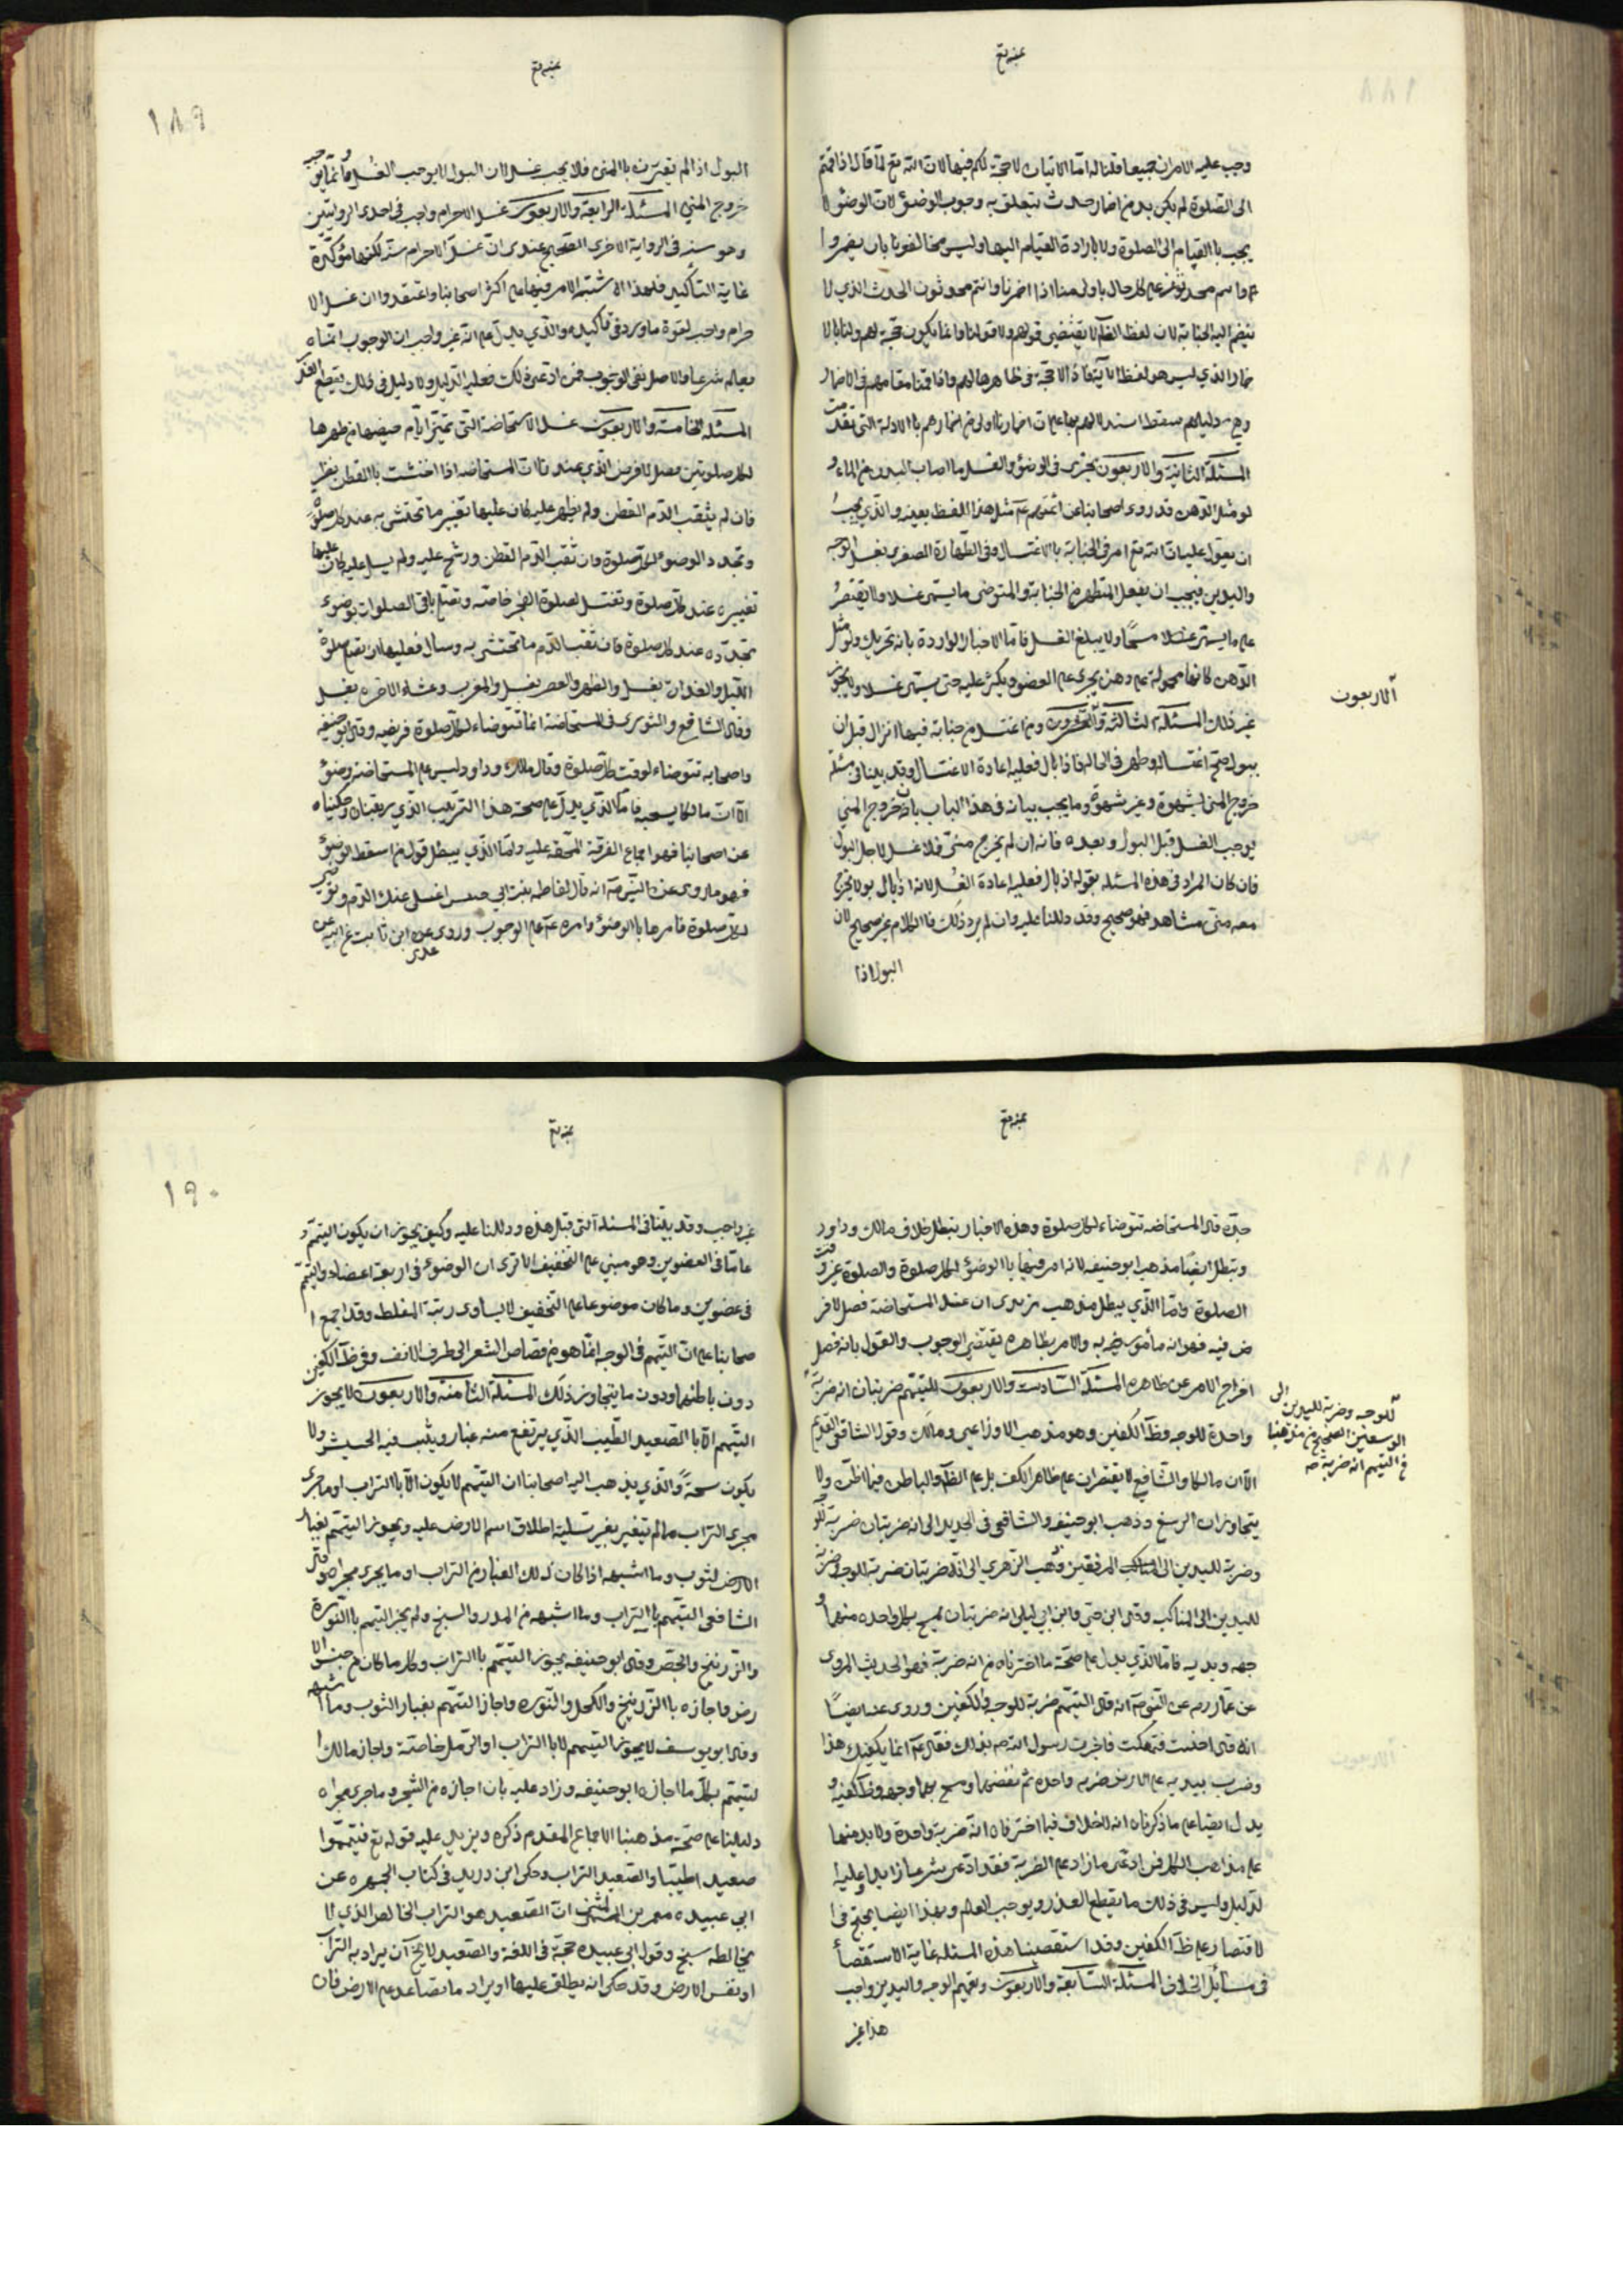 وجب عليه الامران جميعا قلنا له امّا الاتيان لا حجة لكم فيها لان الله تع لمّا قال اذا قمتم
الى الصّلوة لم يكن بد من اضمار حدث يتعلق به وجوب الوضوء لان الوضوء لا
يجب با القيام الى الصلوة ولا بارادة القيام اليها وليس مخالفونا بان يضمروا
ينضم اليه الجنابة لان لفظ الظ لا يقتضى قولهم ولا قولنا وانما يكون حجة لهم ولنا بالا
ضمار الذي ليس هو لفظ الاية فاذا لا حجة في ظاهرها لهم واذا قمنا مقامهم في الاضمار
دليلهم سقط استدلالهم بها على ان اضمارنا اولى من اضمارهم با الادلة التي تقدمت
المسئلة الثانية والاربعون يجزى فى الوضوء والغسل ما اصاب البدن من الماء و
لو مثل الدهن قد روى اصحابنا عن ائمتهم ع مثل هذا اللفظ بعينه والذي يجب
ان يعول عليه ان الله تع امر في الجنابة بالاغتسال وفى الطهارة الصغرى بغسل الوجه
واليدين فيجب ان يفعل المتطهر من الجنابة والمتوضى ما يسمى غسلا ولا يقتصر
على ما يسمى مسحا ولا يبلغ الغسل فاما الاخبار الواردة بانه يجزيك ولو مثل
الدّهن فانها محمولة على دهن يجرى على العضو ويكثر عليه حتى يسمى غسلا ولا يجوز
غير ذلك المسئلة الثالثة والعشرون ومن اغتسل من جنابة فيها انزال قبل ان
آلاربعون
يبول صح اغتساله وطهر فى الحال فاذا بال فعليه اعادة الاغتسال وقد بينا فى مسئلة
خروج المنى لشهوة وغير شهوة وما يجب بيانه فى هذا الباب بان خروج المني
يوجب الغسل قبل البول وبعده فانه ان لم يخرج منىّ فلا غسل لاجل البول
فان كان المراد فى هذه المسئلة بقوله اذ بال فعليه اعادة الغسل لانه اذ بال بولا يخرج
معه منى مشاهد فهو صحيح وقد دللنا عليه وان لم يرد ذلك فا الكلام غير صحيح لان
البول اذا
١٨٩
البول اذا لم يقترن با المنى فلا يجب غسلا لان البول لا يوجب الغسل وانما يوجبه
خروج المني المسئلة الرابعة والاربعون غسل الاحرام واجب فى احدى الروايتين
وهو سنه فى الرواية الاخرى الصحيح عندى انّ غسل الاحرام سنة لكنها مؤكدة
غاية التأكيد فلهذا اشتبه الامر فيها على اكثر اصحابنا واعتقدوا ان غسل الا
حرام واجب لقوة ما ورد فى تأكيده والذي يدل على انه غير واجب ان الوجوب انما
يعلم شرعا والاصل نفى الوجوب فمن ادعى ذلك فعليه الدليل ولا دليل فى ذلك يقطع العذر
المسئلة الخامسة والاربعون غسل الاستحاضة التى تميز ايام حيضها من طهرها
لكل صلوتين فصل لا فرض الذي عندنا ان المستحاضة اذا احتشت با القطن نظر
فان لم يثقب الدم القطن ولم يظهر عليه كان عليها تغيير ما تحتشى به عند كل صلوة
وتجدد الوضوء لكل صلوة وان ثقب الدم القطن ورشح عليه ولم يسل عليه كان عليها
تغييره عند كل صلوة وتغتسل لصلوة الفجر خاصة وتصلى باقى الصلوات بوضوء
تجدّده عند كل صلوة فان ثقب الدم ما تحتشى به وسال فعليها ان تصلى صلوة
الليل والغداة بغسل والظهر والعصر بغسل والمغرب وعشاء الاخره بغسل
وقال الشافع والثورى فى المستحاضة انما تتوضاء لكل صلوة فريضه وقال ابو حنيفه
واصحابه تتوضاء لوقت كل صلوة وقال مالك وداود ليس على المستحاضة وضوء
الا ان مالكا يستحبه فامّا الذي يدل على صحة هذا الترتيب الذي رتبناه وحكيناه
عن اصحابنا فهو اجماع الفرقة المحقة عليه وامّا الذي يبطل قول من اسقط الوضوء
فهو ما روى عن النبى ص انه قال لفاطمه بنت ابي حبيش اغسلى عنك الدم وتوضى
لكل صلوة فامرها با الوضوء وامره ع على الوجوب وروى عدى ابن ثابت عن ابيه عن
حدّه قال المستحاضه تتوضاء لكل صلوة وهذه الاخبار تبطل خلاف مالك وداود
وتبطل ايضا مذهب ابو حنيفه لانه امر فيها با الوضوء لكل صلوة والصلوة غير وقت
الصلوة وامّا الذي يبطل مذهب من يدى ان غسل المستحاضة فصل لا فر
ض فيه فهو انه مأمور به والامر بظاهره يقتضى الوجوب والقول بانه فصل
اخراج الامر عن ظاهره المسئلة السّادسة والاربعون للتيمّم ضربتان انه ضربة
للوجه وضربة لليدين الى
الرسغين الصحيح من مذهبنا
فى التيمم انه ضربة صح
واحدة للوجه وظ الكفين وهو مذهب الاوزاعى ومالك وقول الشافعى القديم
الا ان مالكا والشافع لا يقتصران على ظاهر الكف بل على الظ والباطن فيما اظن ولا
يتجاوزان الرسغ وذهب ابو حنيفه والشافعى فى الجديد الى انه ضربتان ضربة للو
وضربة لليدين الى المرفقين وذهب الزهري الى انه ضربتان ضربة للوجه وضربة
لليدين الى المناكب وقال ابن حيّ وابن ابي ليلى انه ضربتان يمسح بكل واحده منهما و
جهه ويديه فاما الذي يدل على صحة ما اخترناه من انه ضربة فهو الحديث المروى
عن عمار ره عن النبى ص انه قال التيمم ضربة للوجه والكفين وروى عنه ايضا
انه قال اجنبت فتمعكت فاخبرت رسول الله ص بذلك فقال ع انما يكفيك هذا
وضرب بيديه على الارض ضربه واحده ثم نفضهما ومسح بهما وجهه وظ كفيه و
يدل ايضا على ما ذكرناه انه لا خلاف فيما اخترناه انه ضربة واحدة ولا بد منها
على مذاهب الكل فمن ادعى ما زاد على الضربة فقد ادعى شرعا زايدا وعليه ا
لدليل وليس فى ذلك ما يقطع العذر ويوجب العلم وبهذا ايضا يحتج فى ا
لاقتصار على ظ الكفين وقد استقصينا هذه المسئله غاية الاستقصاء
فى مسائل الخلاف المسئلة السّابعة والاربعون وتعميم الوجه واليدين واجب
هذا غير
١٩٠
غير واجب وقد بيّنا فى المسئلة التى قبل هذه ودللنا عليه وكيف يجوز ان يكون التيمم و
عاما فى العضوين وهو مبني على التخفيف الا ترى ان الوضوء فى اربعة اعضاء والتيمم
فى عضوين وما كان موضوعا على التخفيف لا يساوى رتبة المغلظ وقد اجمع ا
صحابنا على انّ التيمم فى الوجه انما هو من قصاص الشعر الى طرف الانف وفى ظ الكفين
دون باطنهما ودون ما يتجاوز ذلك المسئلة الثامنة والاربعون لا يجوز
التيمم الا با الصعيد الطيب الذي يرتفع منه غبار وينبت فيه الحشيش ولا
يكون سبخة والذي يذهب اليه اصحابنا ان التيمم لا يكون الا با التراب او ما جرى
مجرى التراب ما لم يتغير بغير تسلبه اطلاق اسم الارض عليه ويجوز التيمم بغبار
الثوب وما اشبهه اذا كان ذلك الغبار من التراب او ما يجرى مجراه وقال
الشافعى التيمم با التراب وما اشبهه من المدر والسبخ ولم يجز التيمم با النورة
والزرنيخ والجص وقال ابو حنيفه يجوز التيمم با التراب وكل ما كان من جنس الا
رض واجازه با الزرنيخ والكحل والنوره واجاز التيمم بغبار الثوب وما اشبهه
وقال ابو يوسف لا يجوز التيمم الا با التراب او الرمل خاصة واجاز مالك ا
لتيمم بكل ما اجازه ابو حنيفه وزاد عليه بان اجازه من الشجر وما جرى مجراه
دليلنا على صحة مذهبنا الاجماع المقدم ذكره ويزيد عليه قوله تع فتيمموا
صعيدا طيبا والصعيد التراب وحكى ابن دريد فى كتاب الجمهره عن
ابي عبيده معمر بن المثنى انّ الصعيد هو التراب الخالص الذي لا
يخالطه سبخ وقول ابى عبيده حجة فى اللغة والصعيد لا يخ ان يراد به التراب
او نفس الارض وقد حكى انه يطلق عليها او يراد ما تصاعد على الارض فان